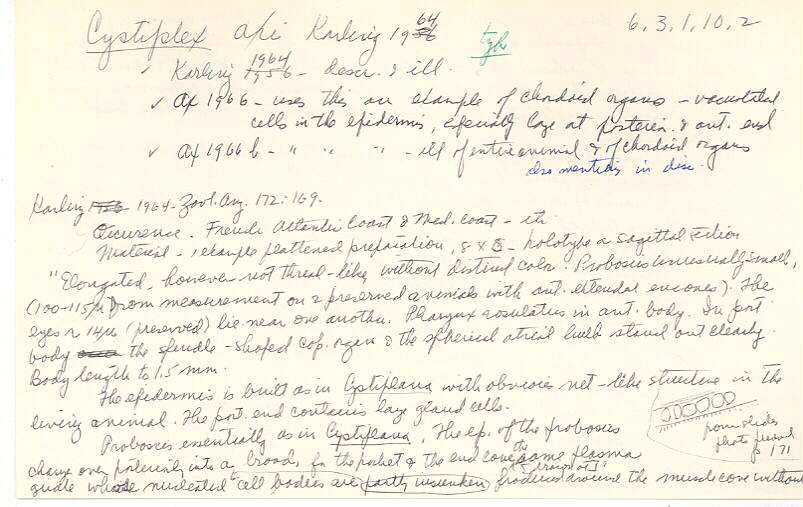 Cystiplex axi Karling 1964 6,3,1,10,2
✓ Karling 1964 – descr. & ill.
✓ Ax 1966 – uses this an example of chordoid organs – vacuolated
cells in the epidermis, especially large at posterior & ant. end
✓ Ax 1966 b – " " " – ill of entire animal & of chordoid organs
also mentions in disc.
Karling 1964 – Zool. Anz. 172: 169.
Occurence. French Atlantic Coast & Med. coast –
Material – 1 example flattened preparation, – holotype a sagittal section
"Elongated, however not thread-like, without distinct color. Proboscis unusually small,
(100-115µ) from measurement on 2 preserved animals with ant. end cones). The
eyes ~ 14µ (preserved) lie near one another. Pharynx rosulatus in ant. body. In post
body the spindle-shaped cop. organ & the spherical atrial bulb stand out clearly.
Body length to 1.5 mm.
The epidermis is built as in Cystiplana with obvious net-like structure in the
living animal. The post. end contains large gland cells.
from slides
photo
p 171
Proboscis essentially as in Cystiplana. The ep. of the proboscis
change over posteriorly into a broads for the pocket & the end cone the same plasma
guide whose nucleated cell bodies are partly insunken produced around the muscle cone without